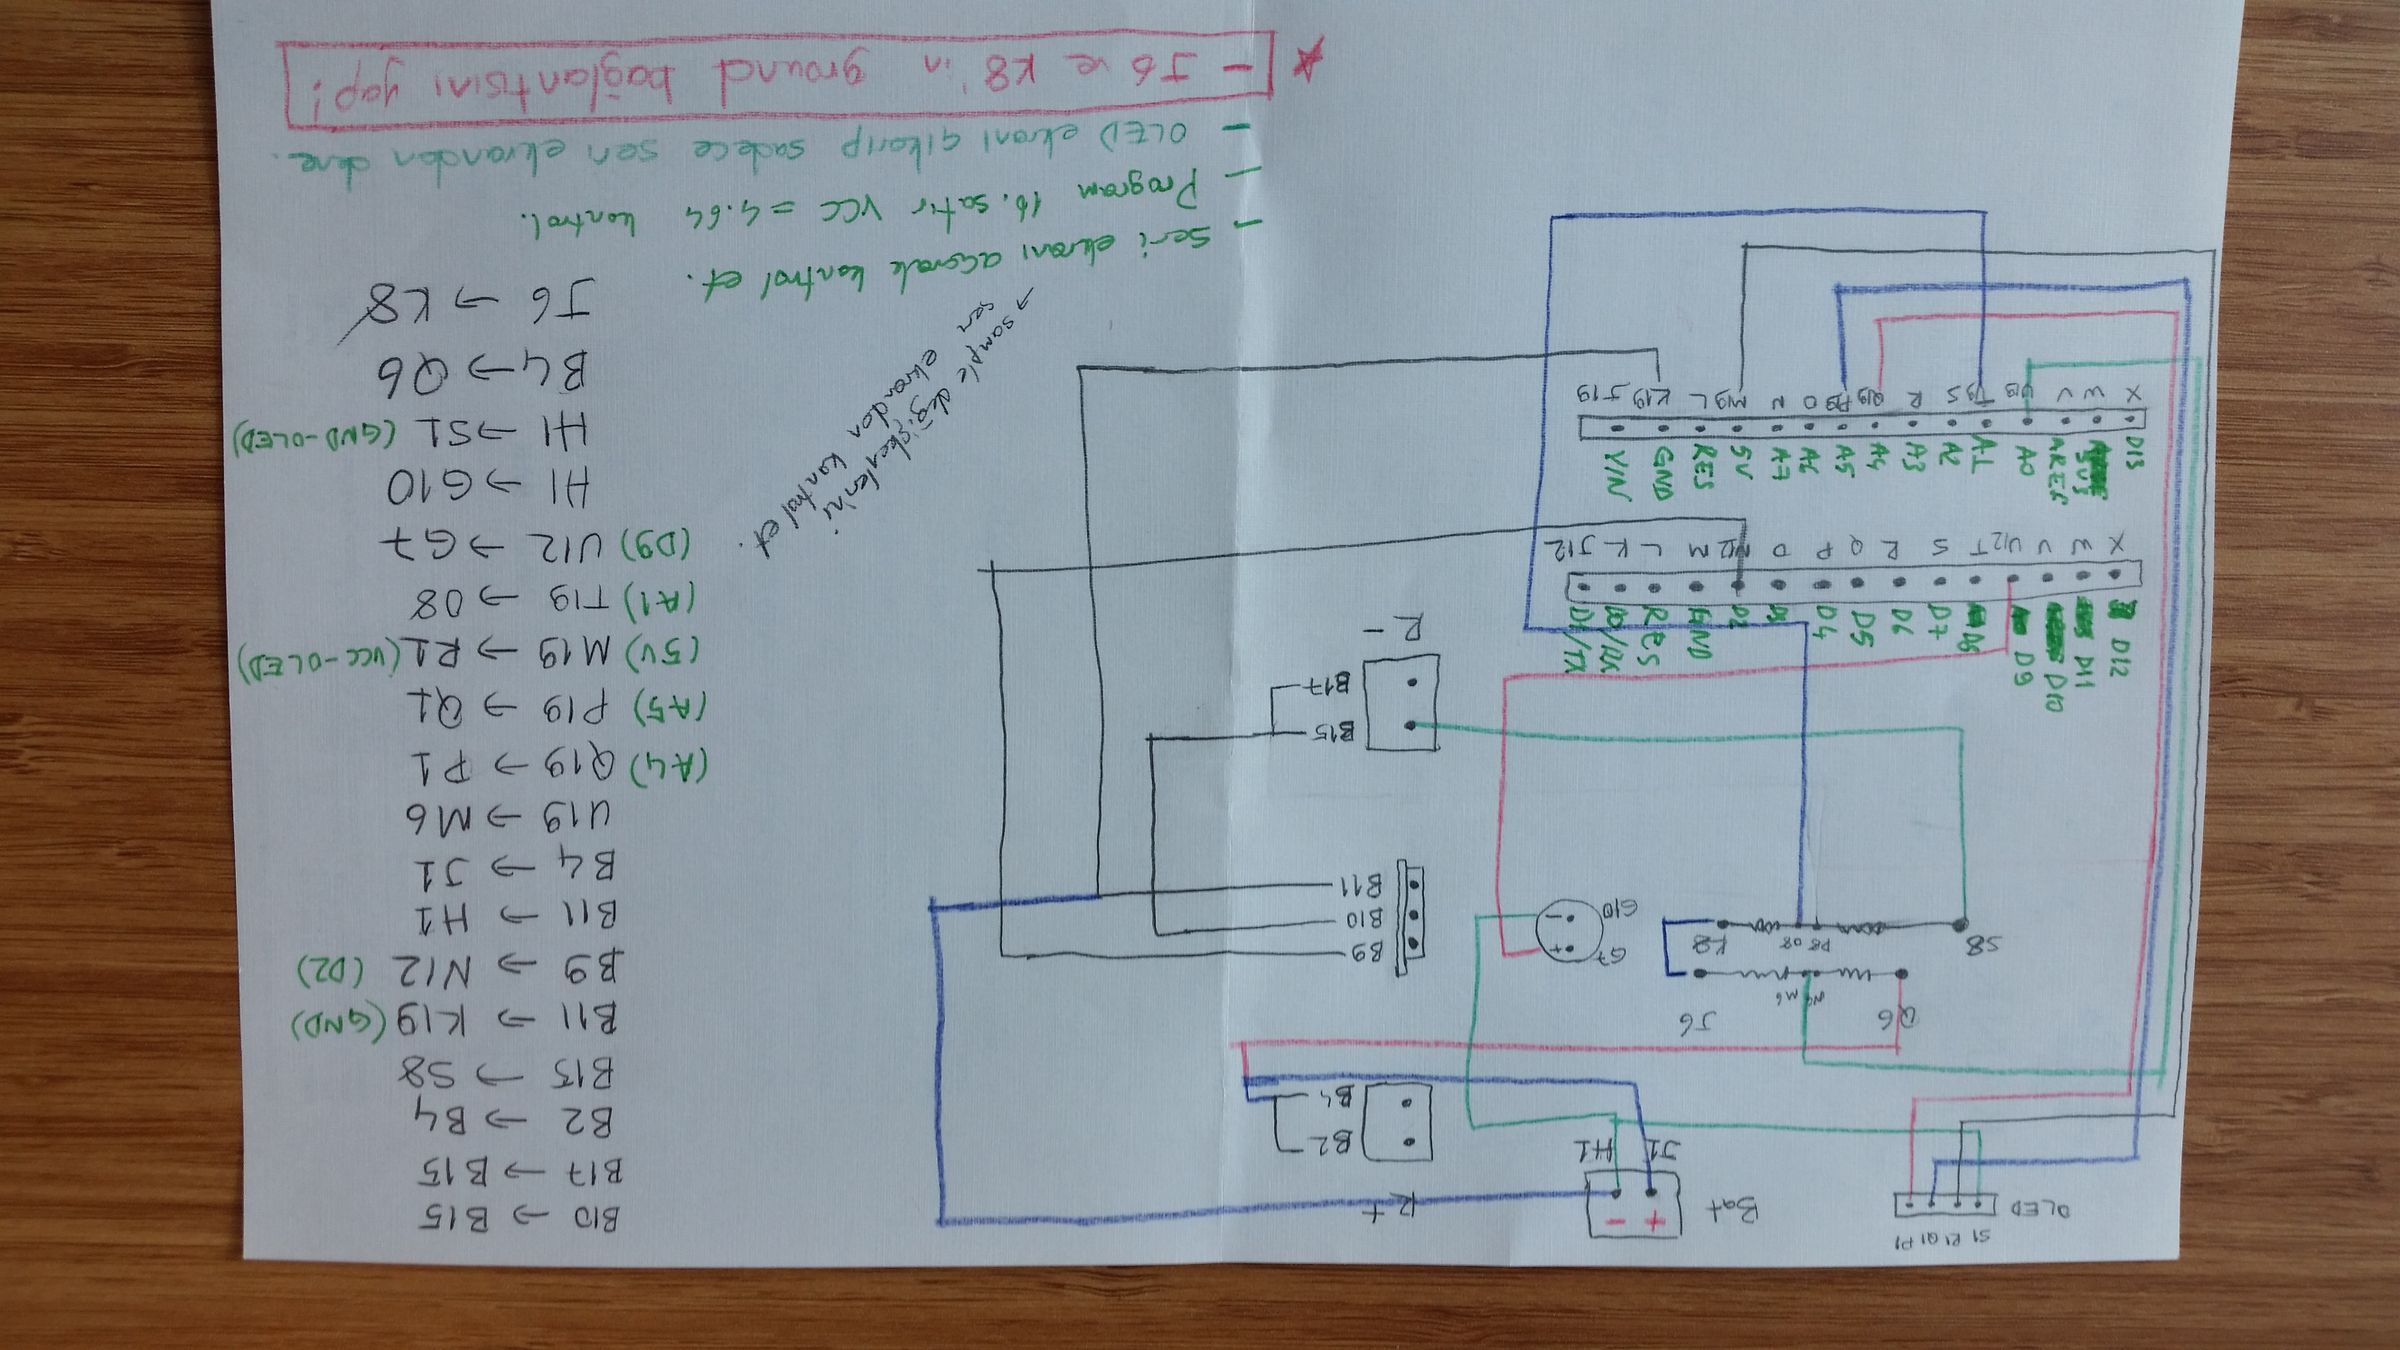 S1 R1 Q1 P1
OLED
Bat
+ -
R+
J1 H1
B2
B4
Q6
J6
N6 M6
S8
P8 O8
K8
G7
+
-
G10
B9
B10
B11
B15
B17
R-
D12 D11 D10 D9 D8 D7 D6 D5 D4 D3 D2 GND RES D0/RX D1/TX
X W V U12 T S R Q P O N12 M L K J12
D13 3V3 AREF A0 A1 A2 A3 A4 A5 A6 A7 5V RES GND VIN
X W V U19 T19 S R Q19 P19 O N M19 L K19 J19
B10 → B15
B17 → B15
B2 → B4
B15 → S8
B11 → K19 (GND)
B9 → N12 (D2)
B11 → H1
B4 → J1
U19 → M6
(A4) Q19 → P1
(A5) P19 → Q1
(5V) M19 → R1 (VCC-OLED)
(A1) T19 → O8
(D9) U12 → G7
H1 → G10
H1 → S1 (GND-OLED)
B4 → Q6
J6 → K8
→ sample değişkenlerini
seri ekrandan kontrol et.
- Seri ekranı açarak kontrol et.
- Program 16. satır VCC = 4.64 kontrol.
- OLED ekranı çıkarıp sadece seri ekrandan dene.
- J6 ve K8'in ground bağlantısını yap!